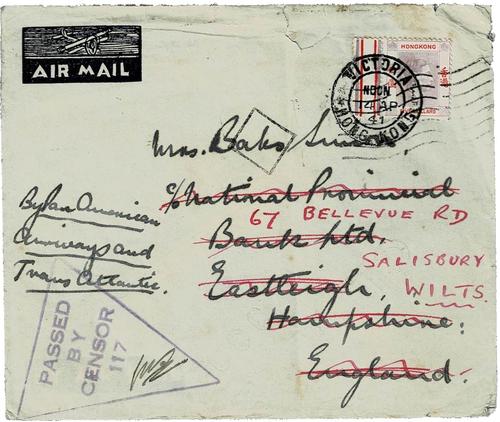 AIR MAIL
HONGKONG
VICTORIA
NOON
14 AP
41
HONG KONG
Mrs.
c/o National Provincial
67 BELLEVUE RD
Bank Ltd.
SALISBURY
Eastleigh,
WILTS.
Hampshire.
England.
By Pan American
Airways and
Trans Atlantic.
PASSED
BY
CENSOR
117